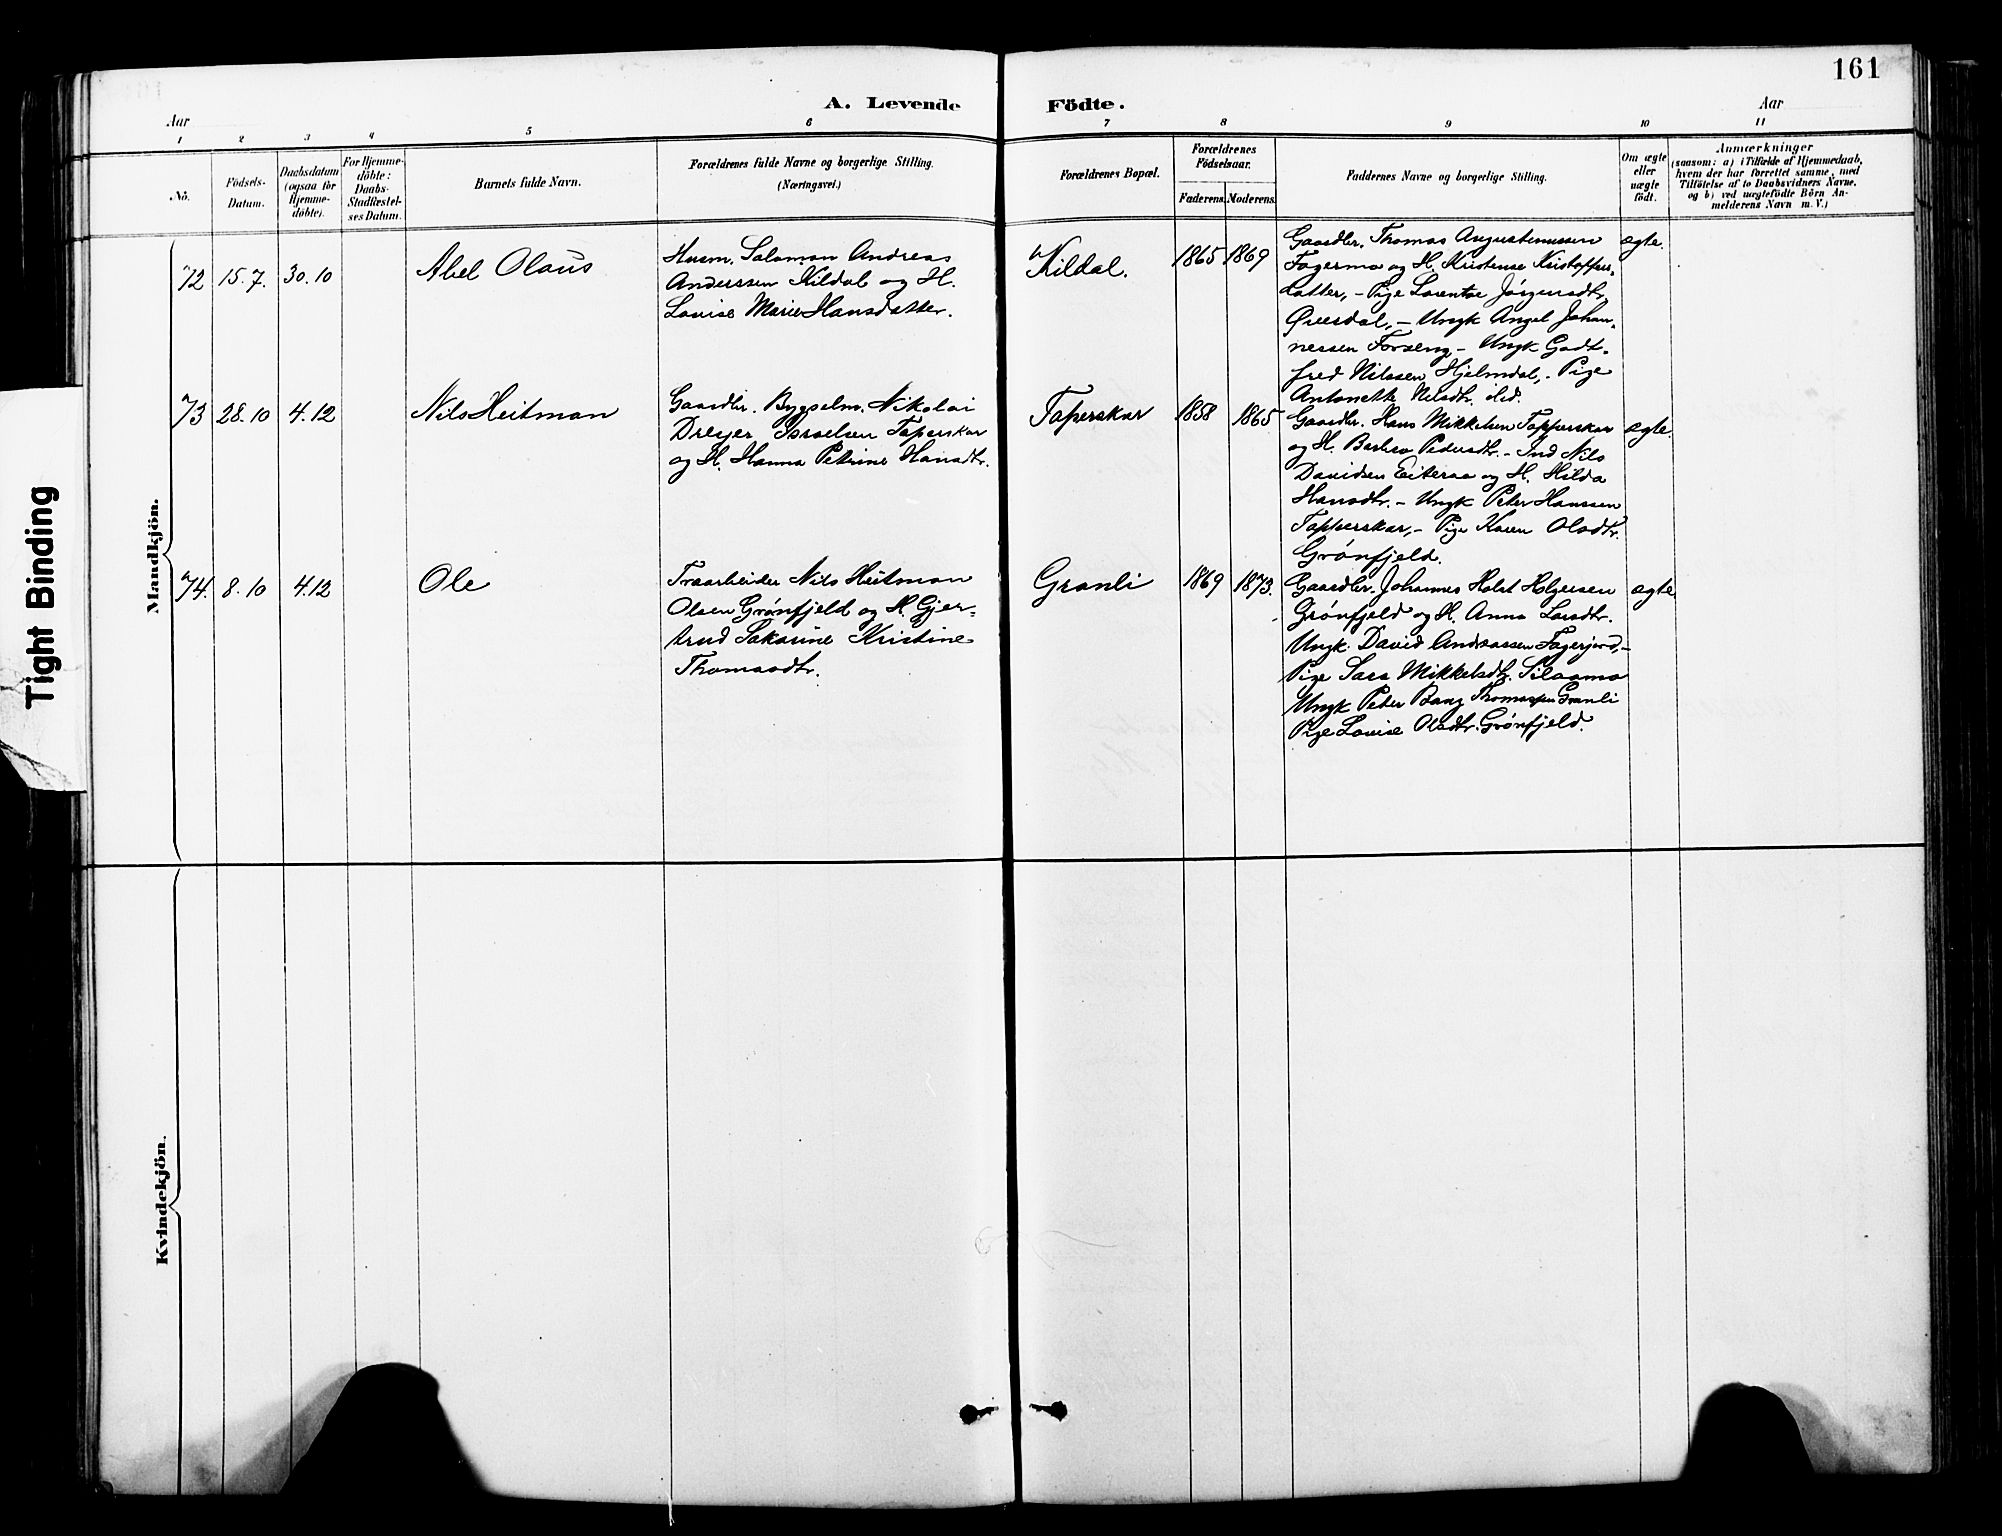 161
A. Levende
Födte.
Aar
Aar
1
2
3
4
5
6
7
8
9
10
11
No.
Födsels-
Datum.
Daabsdatum
(ogsaa for
Hjemme-
döbte).
For Hjemme-
döbte:
Daabs-
Stadfæstel-
ses Datum.
Barnets fulde Navn.
Forældrenes fulde Navne og borgerlige Stilling.
(Næringsvei.)
Forældrenes Bopæl.
Forældrenes
Födselsaar.
Faderens.
Moderens.
Faddernes Navne og borgerlige Stilling.
Om ægte
eller
uægte
födt.
Anmærkninger
(saasom: a) i Tilfælde af Hjemmedaab,
hvem der har forrettet samme, med
Tilföielse af to Daabsvidners Navne,
og b) ved uægtefödte Börn An-
melderens Navn m. V.)
Mandkjön.
72
15.7.
30.10
Abel Olaus
Husm. Salamon Andreas
Anderssen Kildal og H.
Lovise Marie Hansdatter.
Kildal.
1865
1869
Gaardbr. Thomas Augustinussen
Fagermo og H. Kristense Kristoffers-
datter, - Pige Lorentse Jörgensdtr.
Øverdal, - Ungk Angel Johan-
nessen Forseng - Ungk Godt-
fred Nilssen Hjelmdal, - Pige
Antonette Nilsdtr. ibd.
ægte.
73
28.10
4.12
Nils Heitman
Gaardbr. Bygselm. Nikolai
Dreyer Israelsen Taperskar
og H. Hanna Petrine Hansdtr.
Taperskar
1858
1865
Gaardbr. Hans Mikkelsen Tapperskar
og H. Barbro Pedersdtr. - Ind Nils
Davidsen Eiteraa og H. Hilda
Hansdtr. - Ungk Peter Hanssen
Tapperskar, - Pige Karen Olsdtr.
Grönfjeld.
ægte.
74.
8.10
4.12
Ole
Træarbeider Nils Heitman
Olsen Grönfjeld og H. Gjer-
trud Sakarine Kristine
Thomasdtr.
Granli
1869
1873.
Gaardbr. Johannes Holst Holgersen
Grönfjeld og H. Anna Larsdtr.
Ungk. David Andreassen Fagerjord, -
Pige Sara Mikkelsdtr.
Ungk Peter Bang Thomassen Granli
Pige Lovise Olsdtr. Grönfjeld.
ægte
Kvindekjön.
Tight Binding